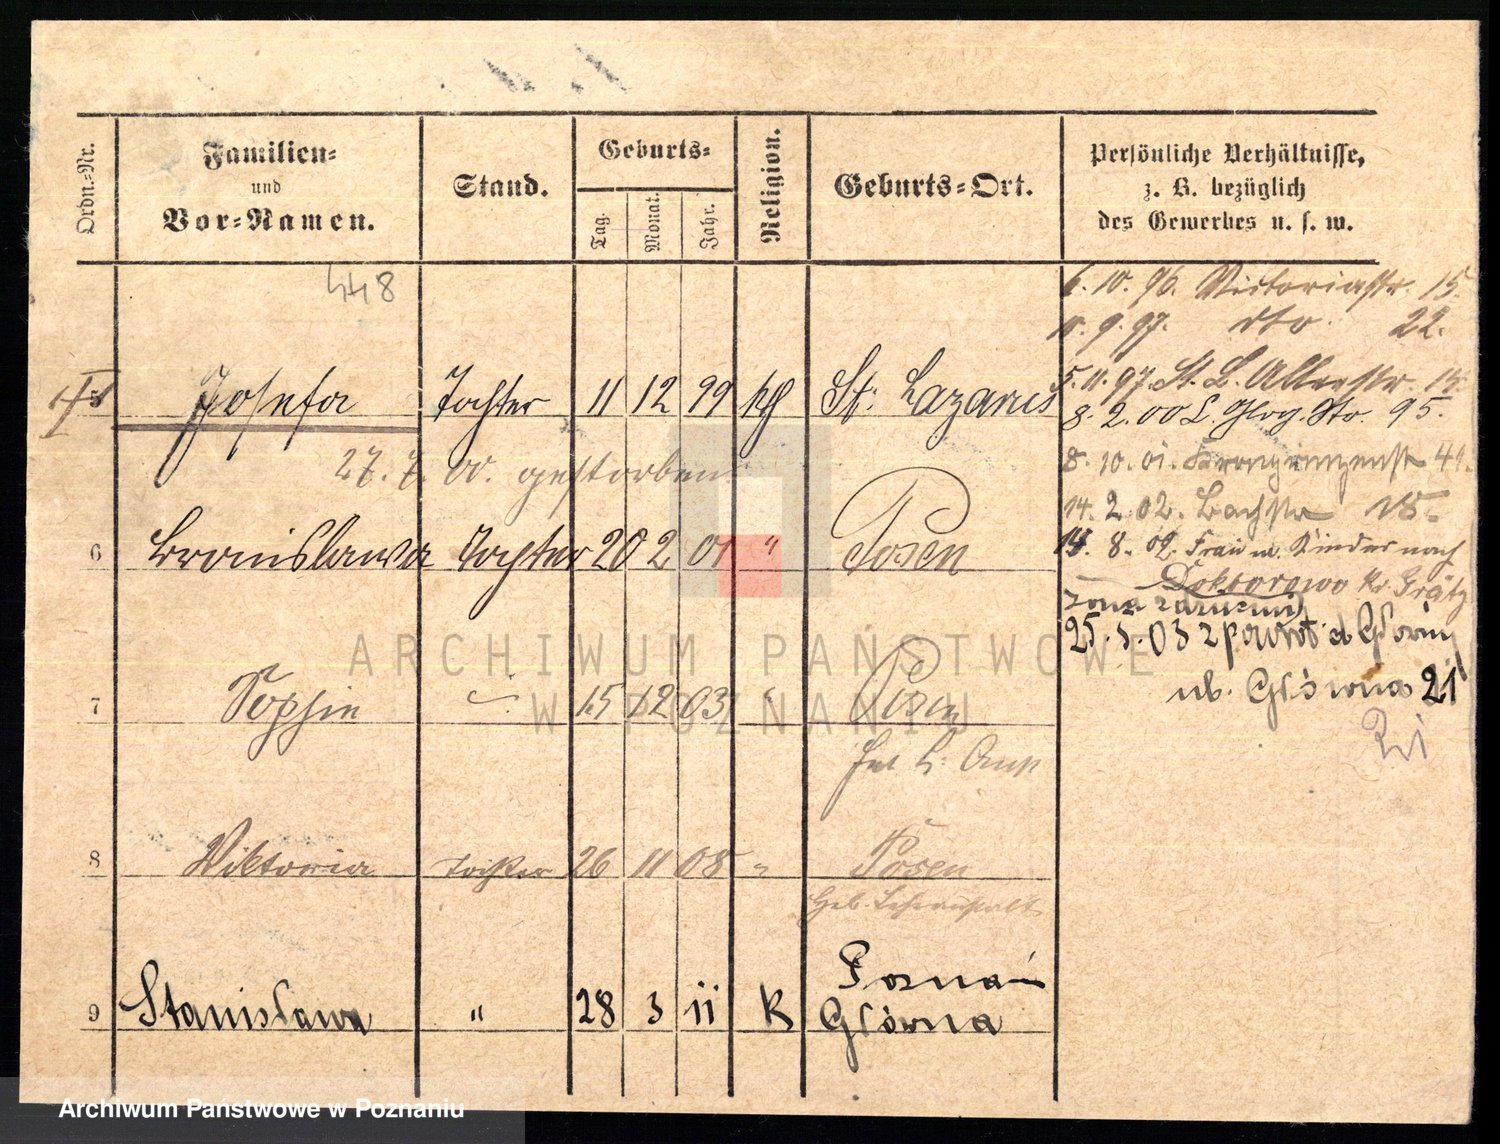 Ordn.-Nr.
Familien-
und
Vor-Namen.
Stand.
Geburts-
Tag.
Monat.
Jahr.
Religion.
Geburts-Ort.
Persönliche Verhältnisse,
z. B. bezüglich
des Gewerbes u. s. w.
448
6. 10. 96. Victoriastr. 15.
9. 97. dto. 22.
5. 11. 97. St. L. Allee str. 15.
5 Josefa Tochter 11 12 99 kth St. Lazarus
8. 2. 00 L. Glog. Str. 95.
27. 7. 00. gestorben.
8. 10. 01. Kronprinzenstr 41.
14. 2. 02. Bachstr
6 Bronislawa Tochter 20 2 01 " Posen
8. 02. Frau u. Kinder nach
Doktorowo Kr. Grätz
25. 03 z powrot
7 Sophie 15 12 03 Posen
ul. Główna 21
8 Viktoria Tochter 26 11 08 " Posen
Geb.
Poznań
9 Stanisława " 28 3 11 K Główna
ARCHIWUM PAŃSTWOWE
W POZNANIU
Archiwum Państwowe w Poznaniu